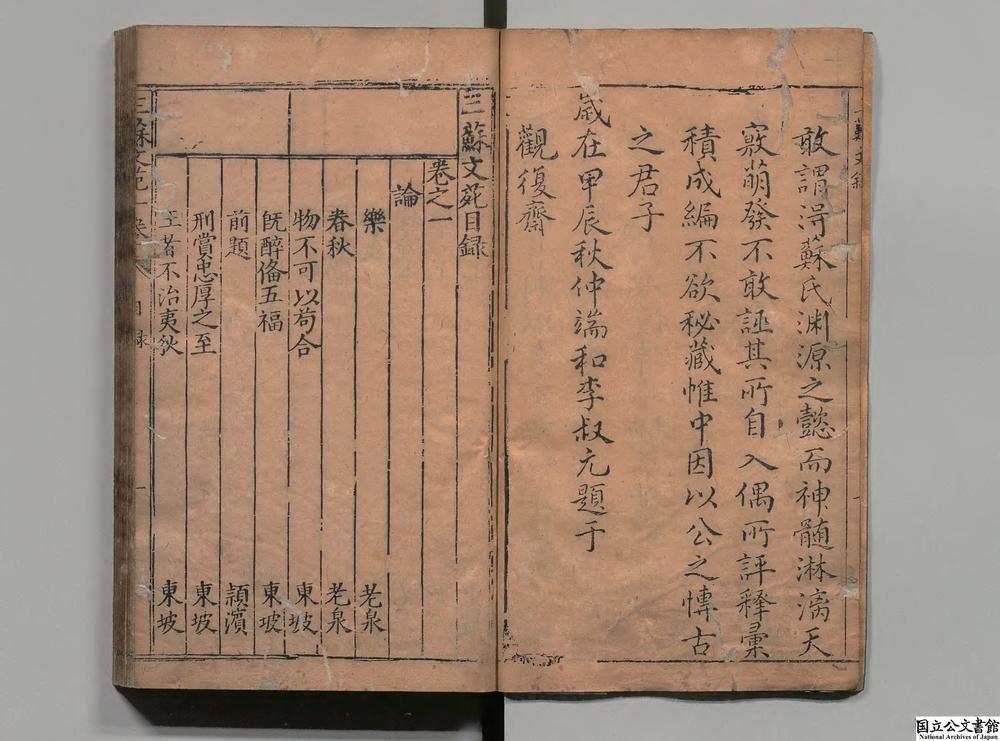 敢謂淂蘇氏渊源之懿而神髓淋漓天
竅萌發不敢誣其所自入偶所評釋彙
積成編不欲秘藏帷中因以公之慱古
之君子
歲在甲辰秋仲端和李叔元題于
觀復齋
三蘇文苑目録
卷之一
論
樂 老泉
春秋 老泉
物不可以茍合 東坡
旣醉俻五福 東坡
前題 頴濱
刑賞忠厚之至 東坡
王者不治夷狄 東坡
三蘇文苑 目録 一
国立公文書館
National Archives of Japan